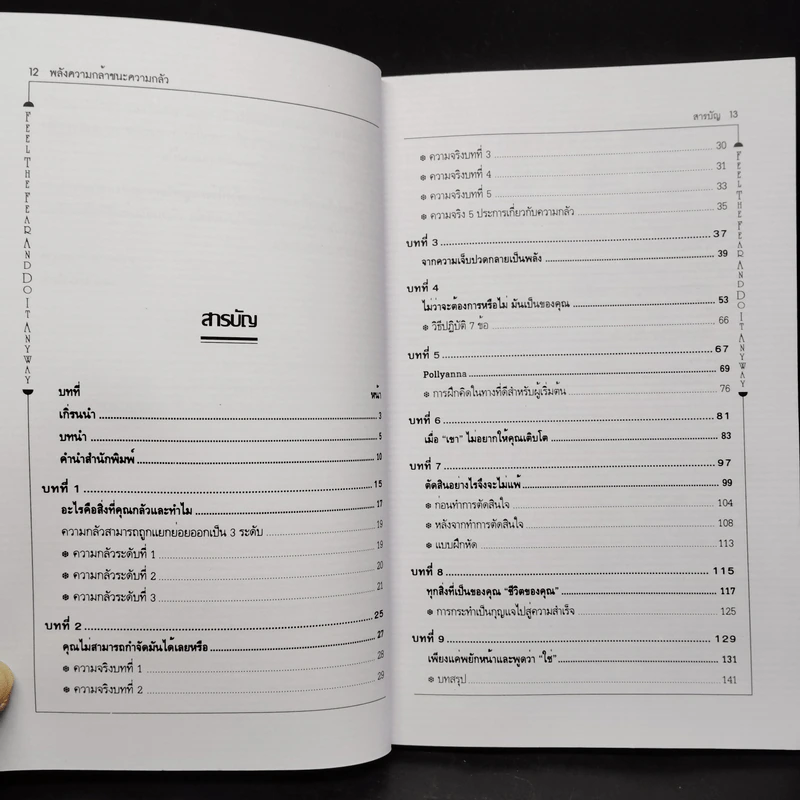 12 พลังความกล้าชนะความกลัว
FEEL THE FEAR AND DO IT ANYWAY
สารบัญ
บทที่ หน้า
เกิ่รนนำ 3
บทนำ 5
คำนำสำนักพิมพ์ 10
บทที่ 1 15
อะไรคือสิ่งที่คุณกลัวและทำไม 17
ความกลัวสามารถถูกแยกย่อยออกเป็น 3 ระดับ 19
❅ ความกลัวระดับที่ 1 19
❅ ความกลัวระดับที่ 2 20
❅ ความกลัวระดับที่ 3 21
บทที่ 2 25
คุณไม่สามารถกำจัดมันได้เลยหรือ 27
❅ ความจริงบทที่ 1 28
❅ ความจริงบทที่ 2 29
สารบัญ 13
❅ ความจริงบทที่ 3 30
❅ ความจริงบทที่ 4 31
❅ ความจริงบทที่ 5 33
❅ ความจริง 5 ประการเกี่ยวกับความกลัว 35
บทที่ 3 37
จากความเจ็บปวดกลายเป็นพลัง 39
บทที่ 4
ไม่ว่าจะต้องการหรือไม่ มันเป็นของคุณ 53
❅ วิธีปฏิบัติ 7 ข้อ 66
บทที่ 5 67
Pollyanna 69
❅ การฝึกคิดในทางที่ดีสำหรับผู้เริ่มต้น 76
บทที่ 6 81
เมื่อ "เขา" ไม่อยากให้คุณเติบโต 83
บทที่ 7 97
ตัดสินอย่างไรจึงจะไม่แพ้ 99
❅ ก่อนทำการตัดสินใจ 104
❅ หลังจากทำการตัดสินใจ 108
❅ แบบฝึกหัด 113
บทที่ 8 115
ทุกสิ่งที่เป็นของคุณ "ชีวิตของคุณ" 117
❅ การกระทำเป็นกุญแจไปสู่ความสำเร็จ 125
บทที่ 9 129
เพียงแค่พยักหน้าและพูดว่า "ใช่" 131
❅ บทสรุป 141
FEEL THE FEAR AND DO IT ANYWAY